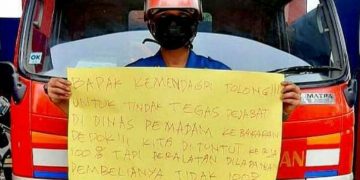 BAPAK KEMENDAGRI TOLONG!!!
UNTUK TINDAK TEGAS PEJABAT
DI DINAS PEMADAM KEBAKARAN
DEPOK!!! KITA DITUNTUT KERJA
100% TAPI PERALATAN DILAPANGAN
PEMBELIANYA TIDAK 100%